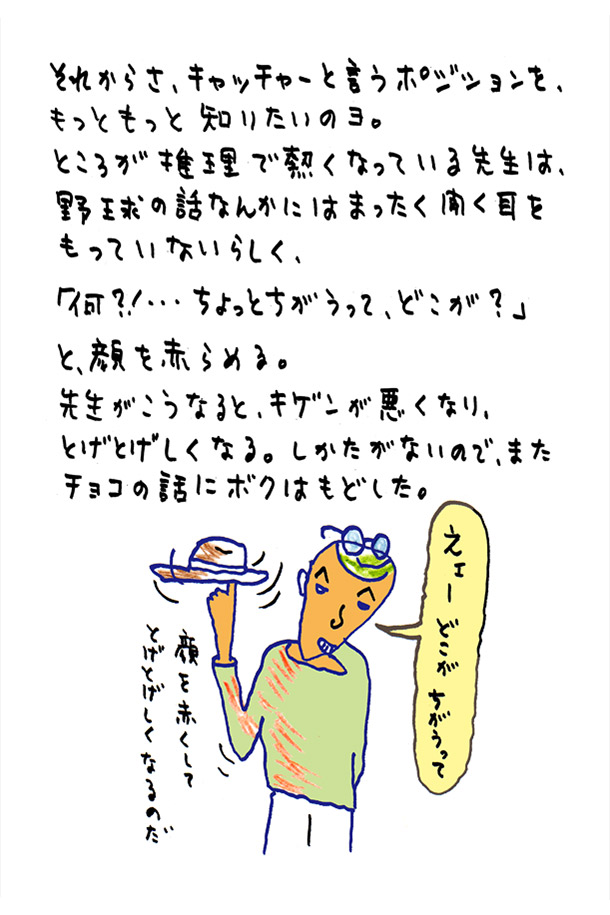 それからさ、キャッチャーと言うポジションを、
もっともっと知りたいのヨ。
ところが推理で熱くなっている先生は、
野球の話なんかにはまったく聞く耳を
もっていないらしく、
「何?!・・・ちょっとちがうって、どこが?」
と、顔を赤らめる。
先生がこうなると、キゲンが悪くなり、
とげとげしくなる。しかたがないので、また
チョコの話にボクはもどした。
えェー どこが ちがうって
顔を赤くして
とげとげしくなるのだ